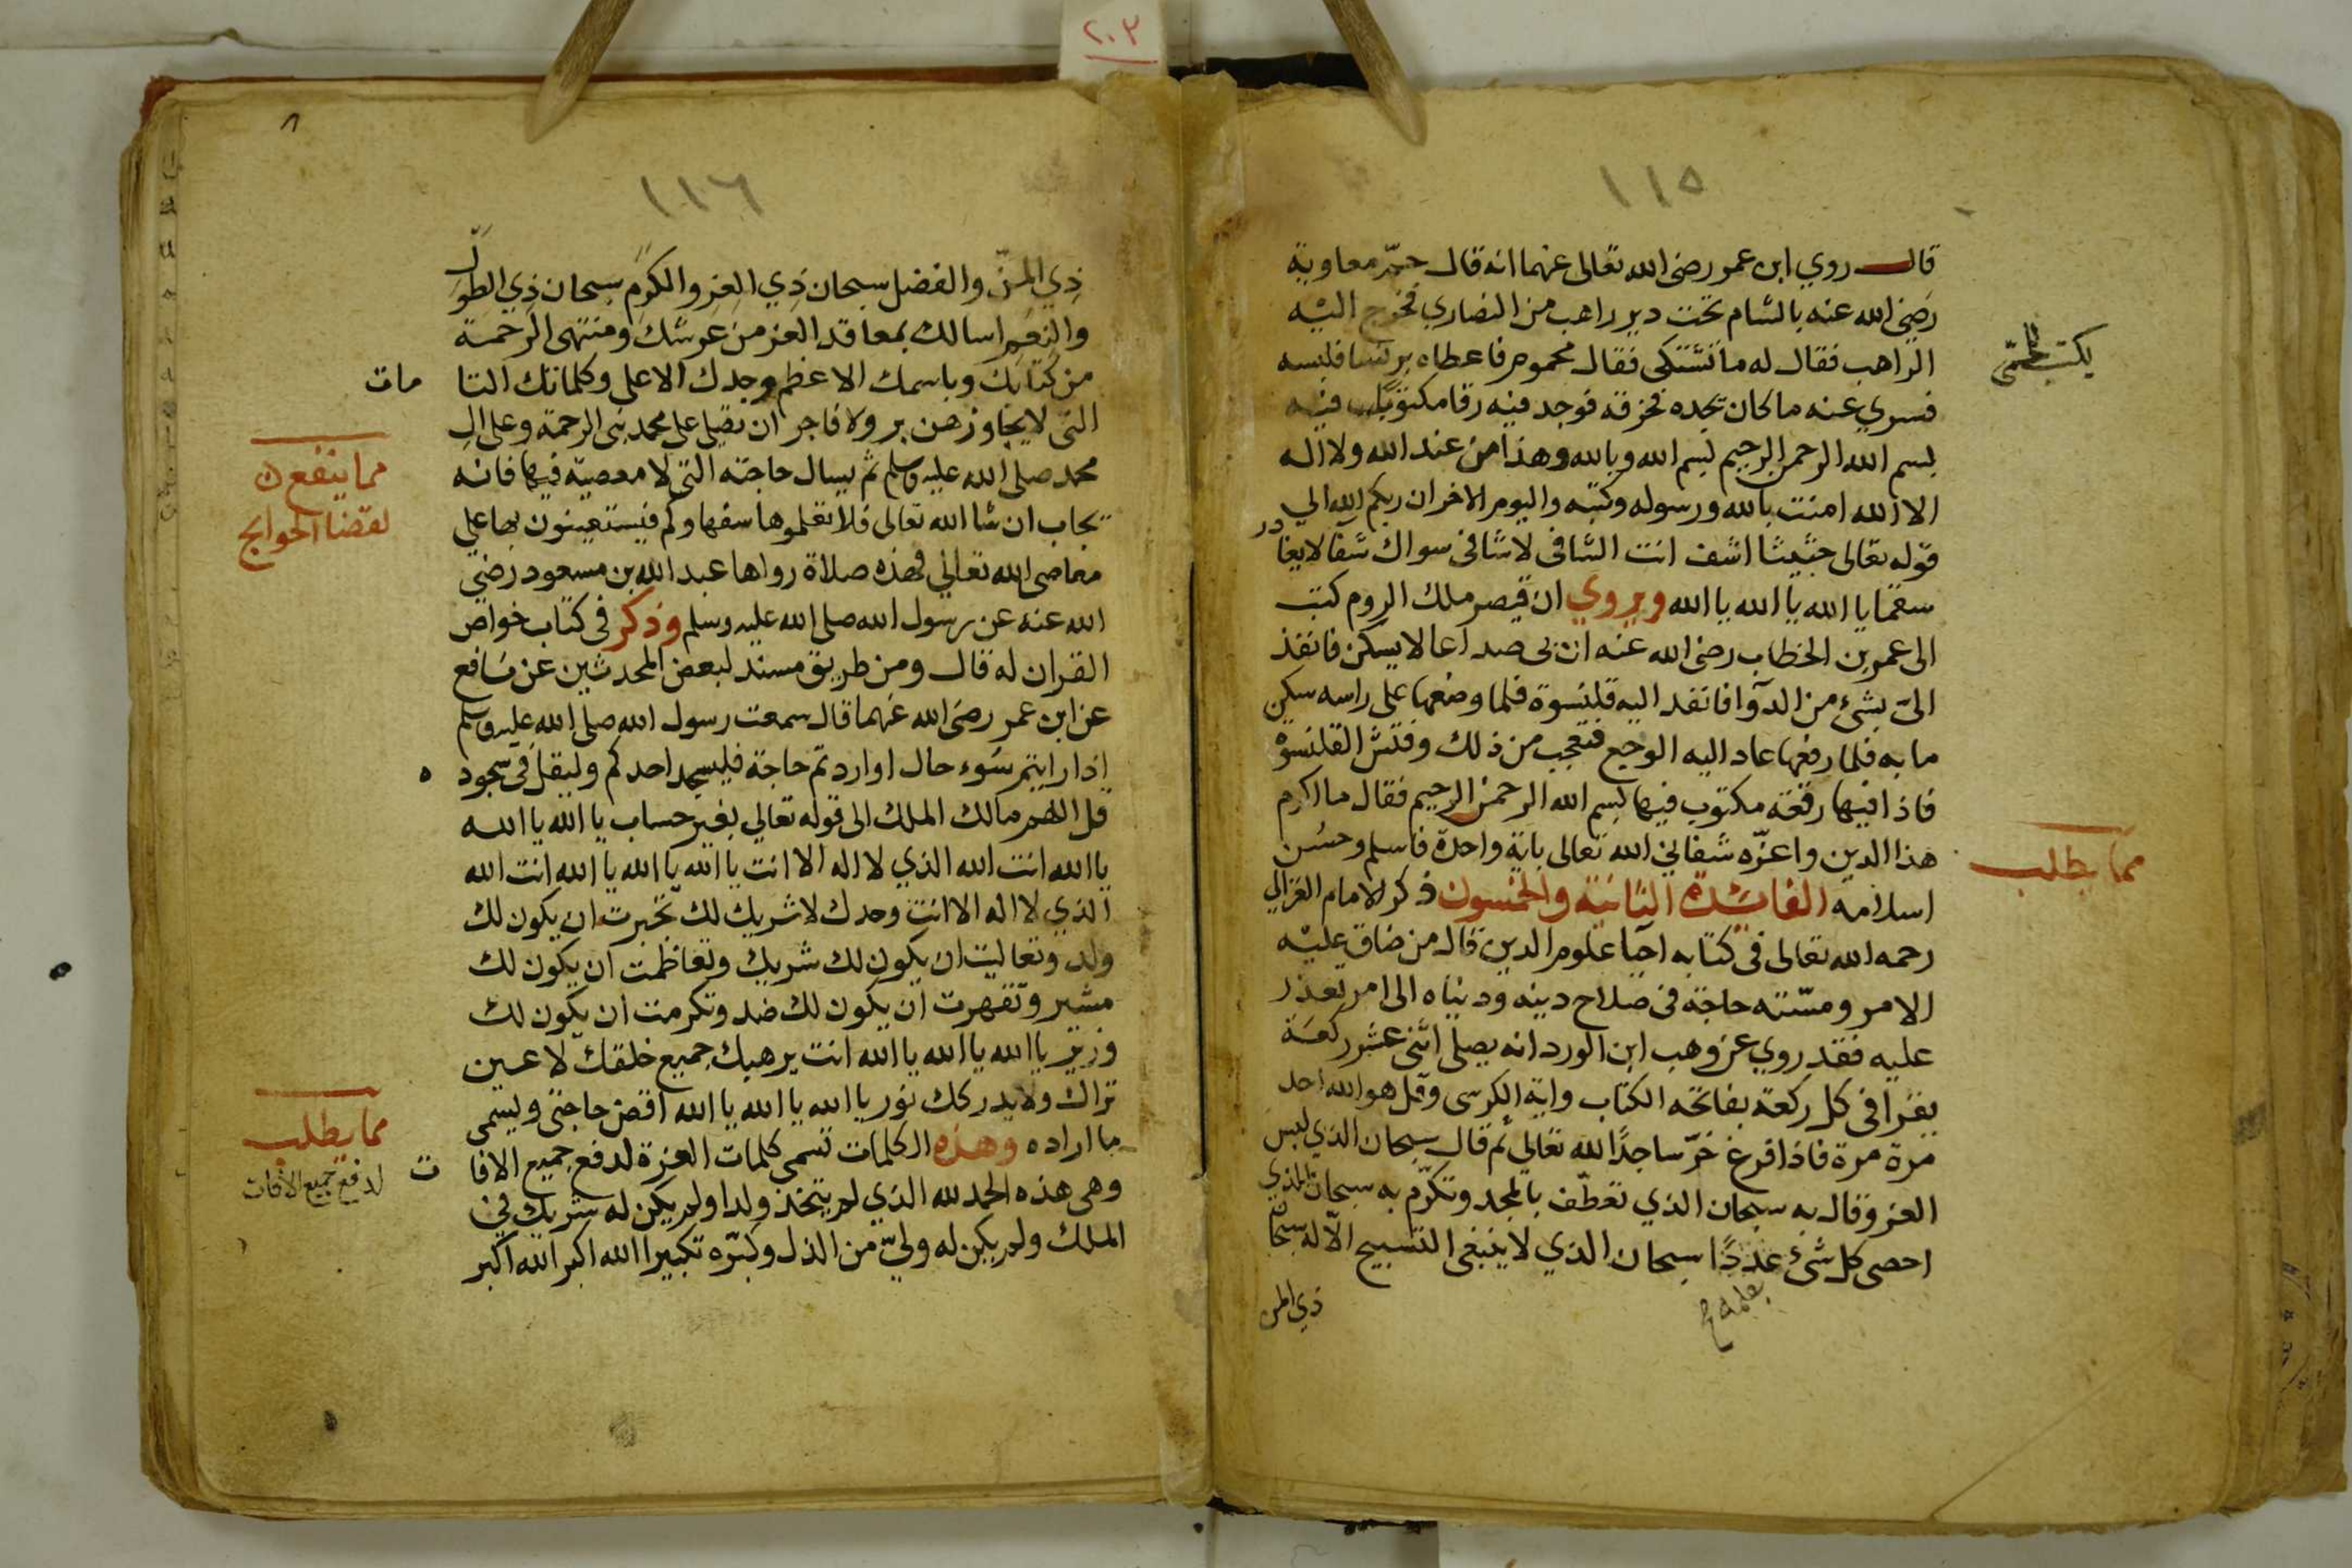 ٢٠٣
١١٥
قال روي ابن عمر رضي الله تعالى عنهما انه قال حمّ معاوية
رضي الله عنه بالشام تحت دير راهب من النصاري فخرج اليه
الراهب فقال له ما تشتكى فقال محموم فاعطاه برنسا فلبسه
فسري عنه ما كان يجده فخرقه فوجد فيه رقا مكتوبا فيه
بسم الله الرحمن الرحيم بسم الله وبالله وهذا من عند الله ولا اله
الا الله امنت بالله ورسوله وكتبه واليوم الاخر ان ربكم الله الي
قوله تعالى حثيثا اشف انت الشافى لا شافى سواك شفا لا يغادر
سقما يا الله يا الله يا الله ويروي ان قيصر ملك الروم كتب
الى عمر بن الخطاب رضي الله عنه ان بى صداعا لا يسكن فانفذ
الىّ بشئ من الدوآ فانفد اليه قلنسوة فلما وضعها على راسه سكن
ما به فلما رفعها عاد اليه الوجع فتعجب من ذلك وفتش القلنسوة
فاذا فيها رقعة مكتوب فيها بسم الله الرحمن الرحيم فقال ما اكرم
هذا الدين واعزّه شفاني الله تعالى باية واحدة فاسلم وحسُن
اسلامه الفائدة الثانية والخمسون ذكر الامام الغزالي
رحمه الله تعالى فى كتابه احيا علوم الدين قال من ضاق عليه
الامر ومسّته حاجة فى صلاح دينه ودنياه الى امر تعذر
عليه فقد روي عن وهب ابن الورد انه يصلى اثنى عشر ركعة
يقرا فى كل ركعة بفاتحة الكتاب واية الكرسى وقل هو الله احد
مرة مرة فاذا فرغ خرّ ساجدًا لله تعالي ثم قال سبحان الذي لبس
العز وقال به سبحان الذي تعطّف بالمجد وتكرّم به سبحان الذي
احصى كل شئ عددًا سبحان الذي لا ينبغى التسبيح الاّ له سبحان
بعلمه
ذي المن
يكتب للحمّى
مما يطلب
٨
١١٦
ذي المنّ والفضل سبحان ذي العز والكرم سبحان ذي الطول
والنعم اسالك بمعاقد العز من عرشك ومنتهى الرحمة
من كتابك وباسمك الاعظم وجدك الاعلى وكلماتك التا مات
التى لا يجاوزهن بر ولا فاجر ان تصلى على محمد نبى الرحمة وعلى ال
محمد صلى الله عليه وسلم ثم يسال حاجته التى لا معصية فيها فانه
يجاب ان شا الله تعالى فلا تعلموها سفهاوكم فيستعينون بها على
معاصى الله تعالي فهذه صلاة رواها عبد الله بن مسعود رضي
الله عنه عن رسول الله صلى الله عليه وسلم وذكر فى كتاب خواص
القران له قال ومن طريق مسند لبعض المحدثين عن نافع
عن ابن عمر رضي الله عنهما قال سمعت رسول الله صلى الله عليه وسلم
اذا رايتم سوء حال او اردتم حاجة فليسجد احدكم وليقل فى سجود ه
قل اللهم مالك الملك الى قوله تعالي بغير حساب يا الله يا الله
يا الله انت الله الذي لا اله الا انت يا الله يا الله يا الله انت الله
الذي لا اله الا انت وحدك لا شريك لك تجبرت ان يكون لك
ولد وتعاليت ان يكون لك شريك وتعاظمت ان يكون لك
مشير وتقهرت ان يكون لك ضد وتكرمت ان يكون لك
وزير يا الله يا الله يا الله انت يرهبك جميع خلقك لا عين
تراك ولا يدركك نور يا الله يا الله يا الله اقض حاجتى ويسمى
ما اراده وهذه الكلمات تسمى كلمات العزة لدفع جميع الافا ت
وهى هذه الحمد لله الذي لم يتخذ ولدا ولم يكن له شريك في
الملك ولم يكن له وليّ من الذل وكبّره تكبيرا الله اكبر الله اكبر
مما ينفع
لقضا الحوايج
مما يطلب
لدفع جميع الافات